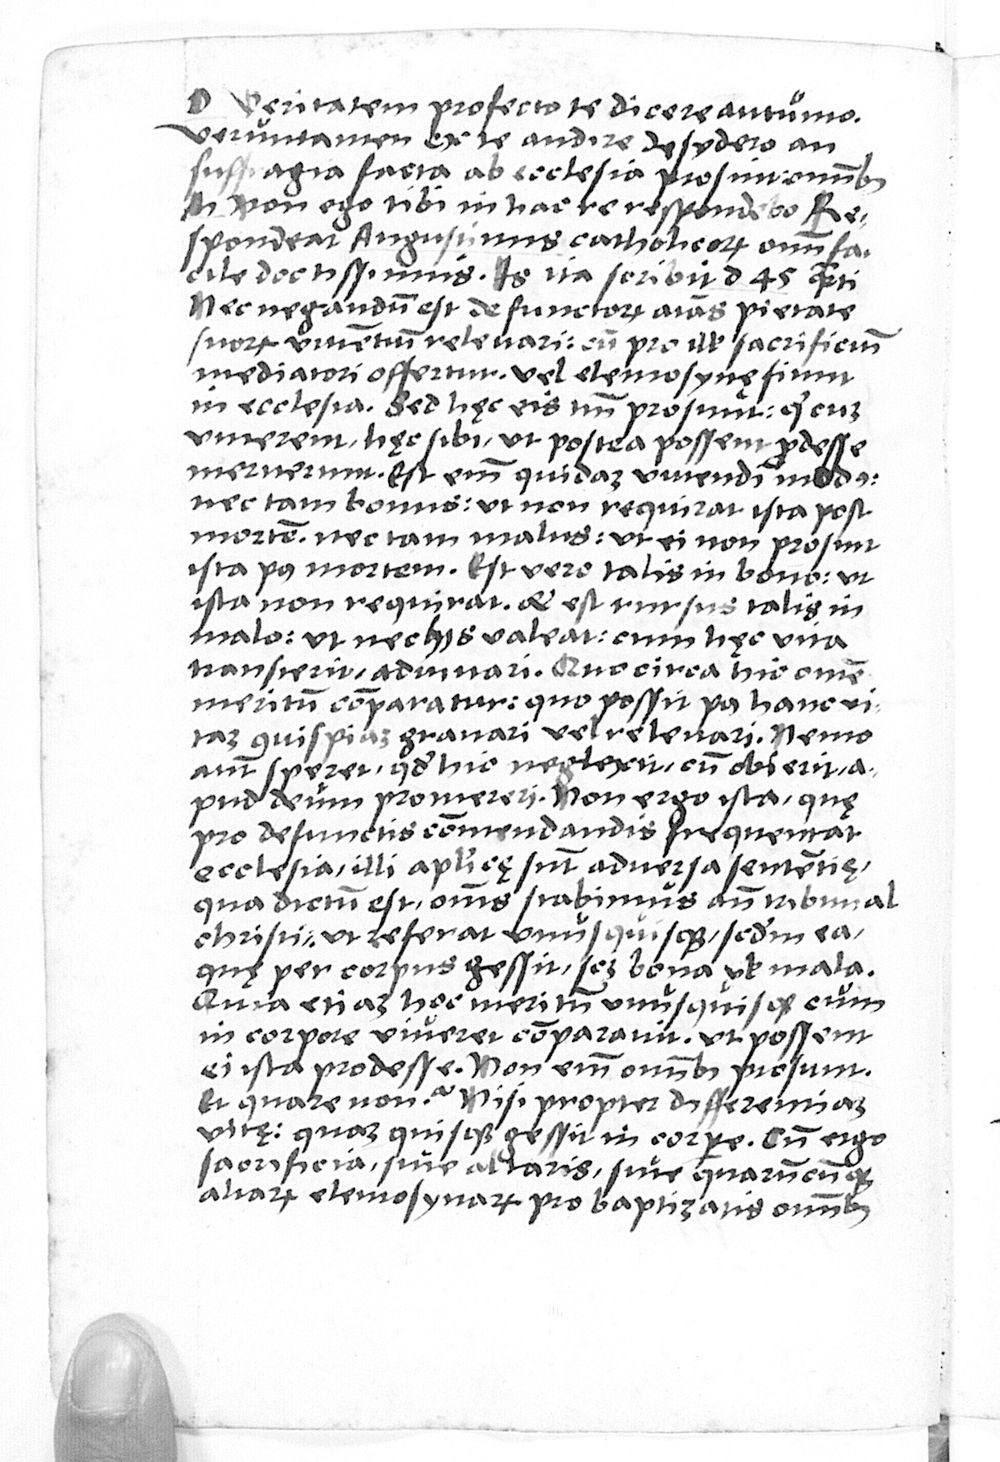 D Veritatem profecto te dicere autůmo.
verůntamen ex te audire desydero an
suffragia facta ab ecclesia prosint omnibꝫ
N Non ego tibi in hac re respondebo Re-
spondeat Augustinus catholicoꝝ oim̄ fa-
cile doctissimus. Is ita scribit d 45 q̄sti
Nec negandū est defunctoꝝ aīas pietate
suoꝝ viuentiū releuari: cū pro illis sacrificiū
mediatori offertur. vel elemosynę fiunt
in ecclesia. Sed hęc eis tm̄ prosunt: q̇ cuꝫ
viuerent, hęc sibi, vt postea possent ꝓdesse
meruerunt. Est em̄ quidaꝫ viuendi modꝰ:
nec tam bonus: vt non requirat ista post
mortē. nec tam malus: vt ei non prosint
ista pꝰ mortem. Est vero talis in bono: vt
ista non requirat. & est rursus talis in
malo: vt nec hys valeat: cum hęc vita
transierit, adiuuari. Quocirca hic omē
meritū cōparatur: quo possit pꝰ hanc vi-
taꝫ quispiaꝫ grauari vel releuari. Nemo
aut̄ speret, qd̄ hic neglexit, cū obierit, a-
pud deům promereri. Non ergo ista, quę
pro defunctis cōmendandis frequentat
ecclesia, illi aplicę sunt̄ aduersa sentētię,
qua dictū est, oms̄ stabimus an̄ tribunal
christi, vt referat vnůsquisqꝫ, scdm̄ ea,
quę per corpus gessit, seꝫ bona vł mala.
Quia etiaꝫ hoc meritū vnůsquisqꝫ cům
in corpore viůeret cōparauit. vt possent
ei ista prodesse. Non em̄ omībꝫ prosunt.
Et quare non? Nisi propter differentiaꝫ
vitę: quaꝫ quisqꝫ gessit in corpore. Cū ergo
sacrificia, siue altaris, siue quarūcūqꝫ
aliaꝝ elemosynaꝝ pro baptizatis omībꝫ